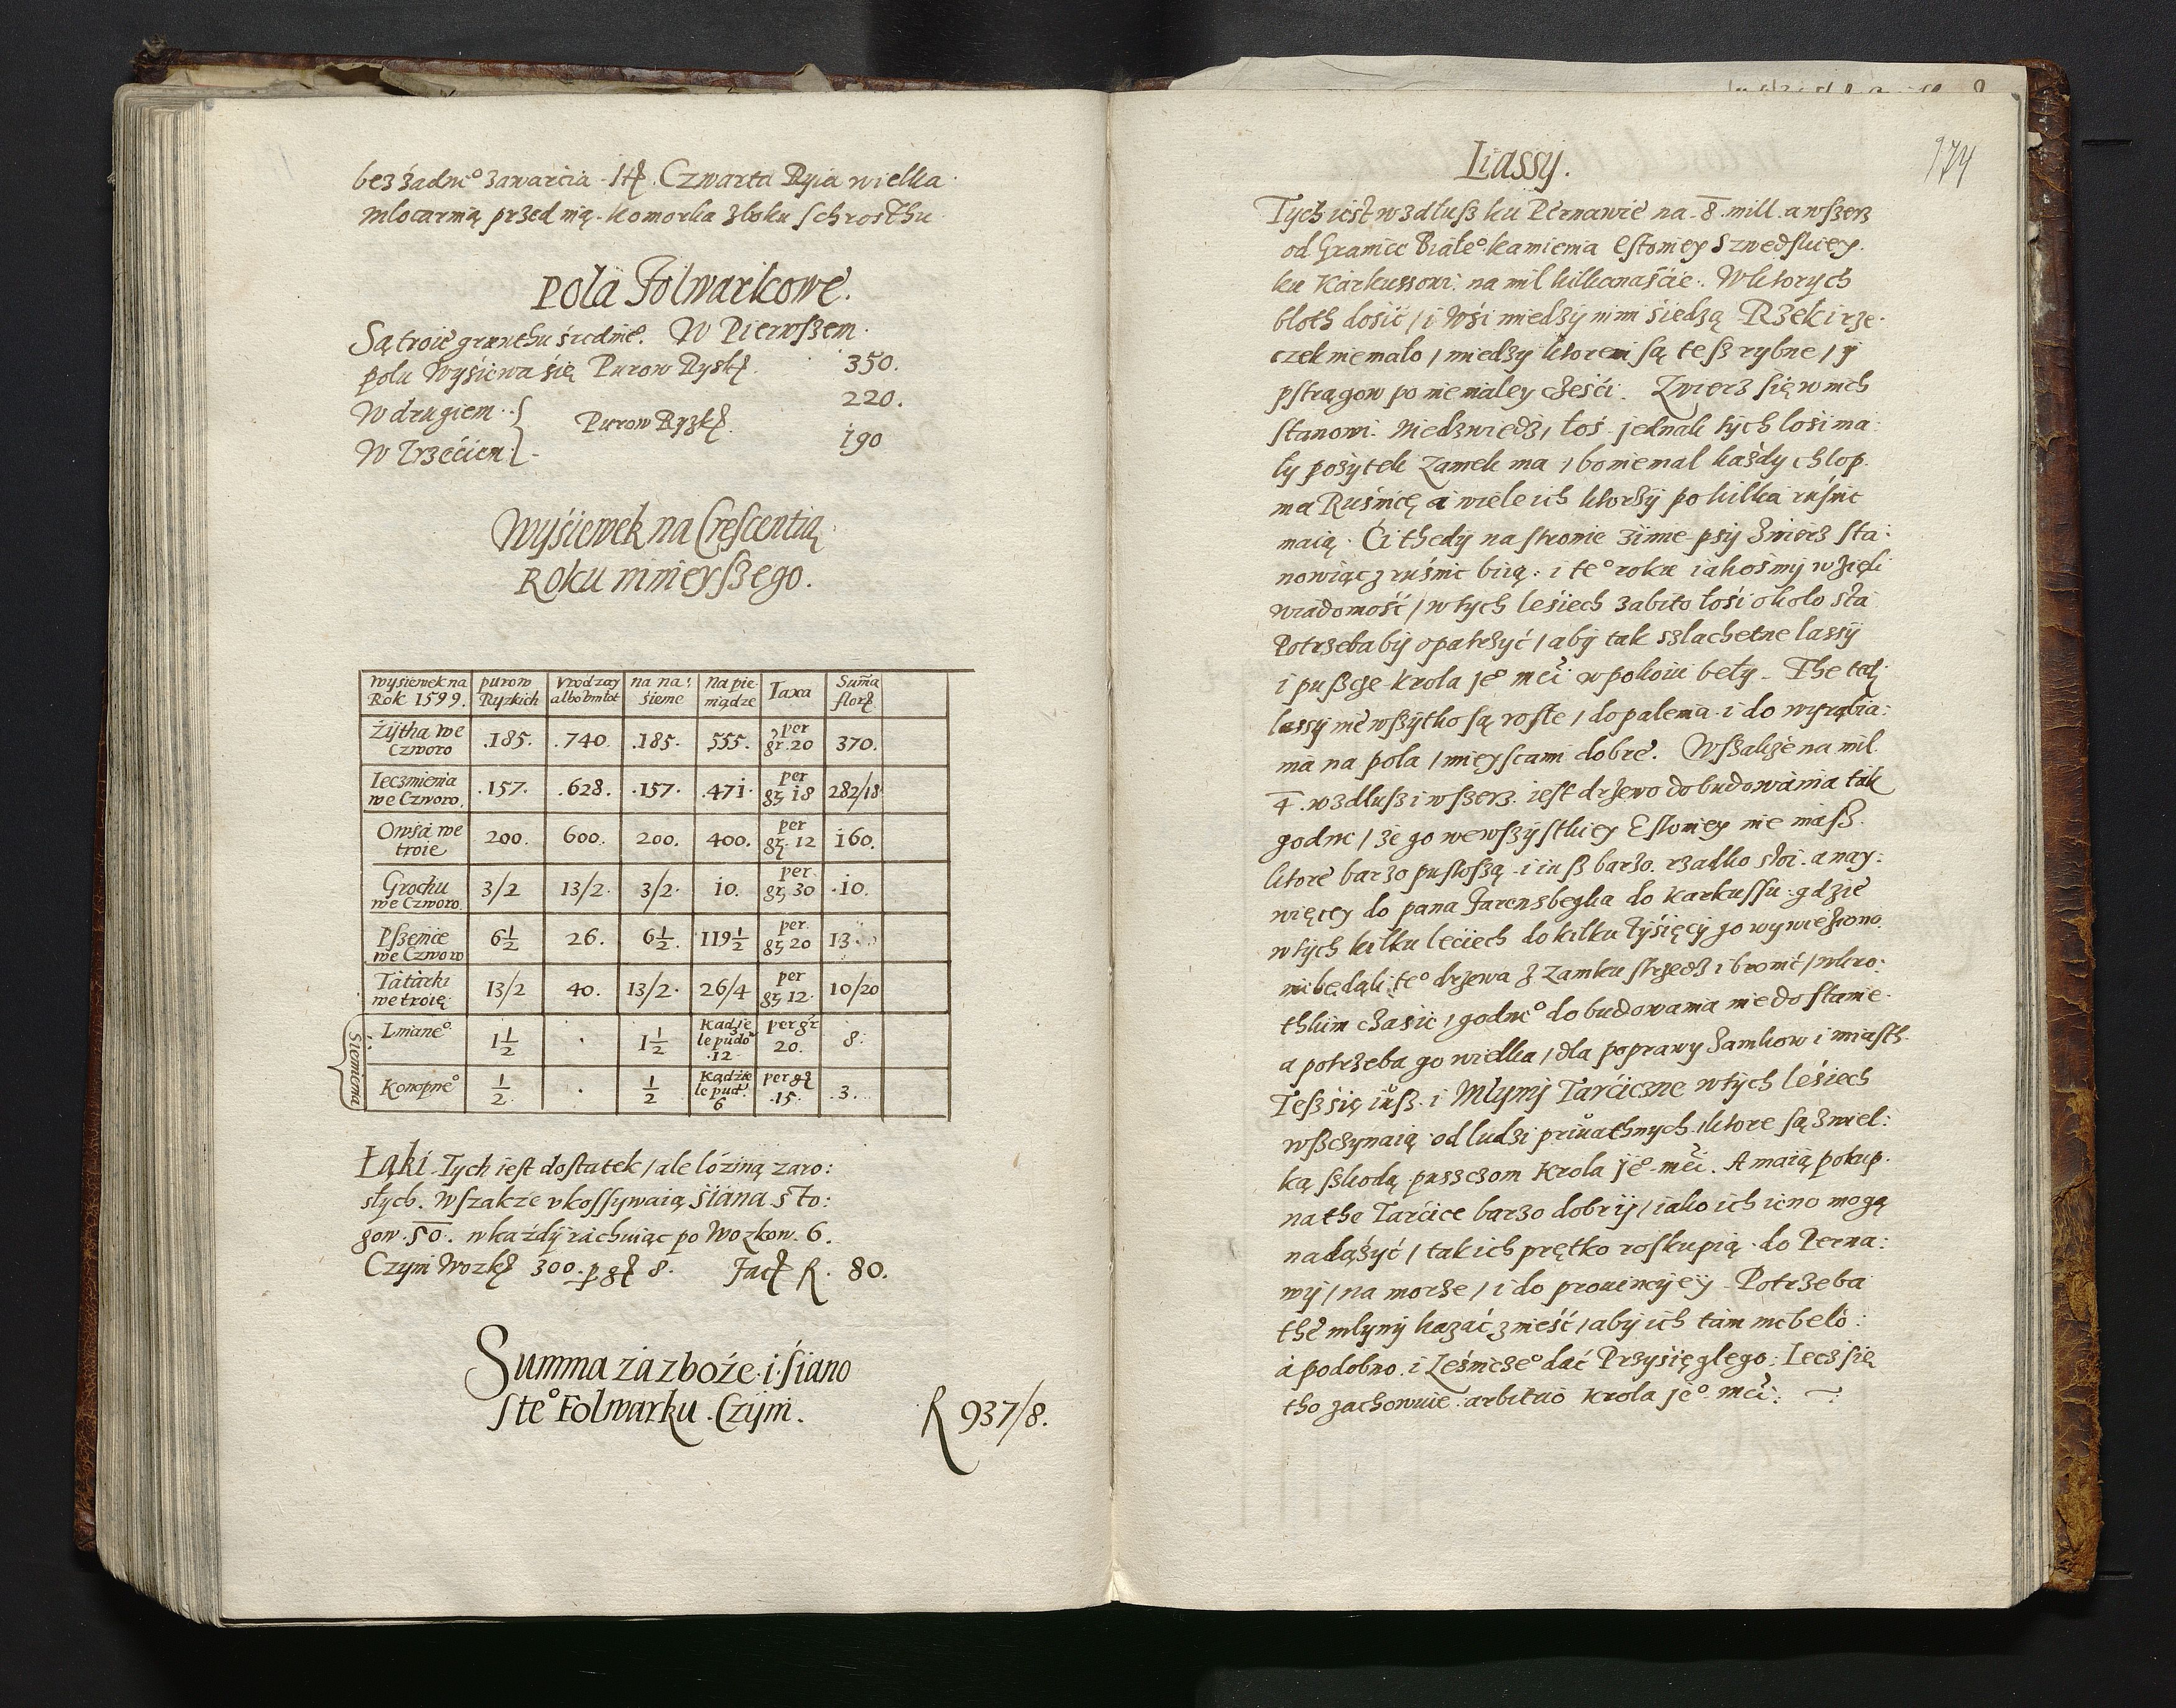 bez żadne° zawarcia. Itꝭ. Czwarta Ryia wielka
mlocarnią przed nią. Komorka zboku schrosthu
Pola Folwarkowe.
Są troie grunthu średnie°. W Pierwszem
polu Wysiewa się Purow Ryskꝭ. 350.
W drugiem 220.
Purow Ryzkꝭ.
W Trzecien 190
Wysiewek na Crescentią
Roku ninieyszego.
Wysiewek na Rok 1599. | purow Ryzkich | Vrodzay albo Omłot | na na: sienie | Na pie niądze | Taxa | Sum̃a florꝭ
Żÿtha we Czworo | .185. | .740. | .185. | 555. | per gr. 20 | 370.
Ieczmienia we Czworo. | .157. | .628. | .157. | .471. | per gꝭ 18 | 282/18
Owsa we troie | 200. | 600. | 200. | 400. | per gꝭ. 12 | 160.
Grochu we Czworo. | 3/2 | 13/2. | 3/2. | 10. | per gꝭ 30 | .10.
Pszenice we Czworo | 6½ | 26. | 6½. | 119½ | per. gꝭ 20 | 13.
Tatarki we troię | 13/2 | 40. | 13/2. | 26/4 | per gꝭ 12. | 10/20
Siemienia
Lniane° | 1½ | . | 1½ | Kądzie le pudo .12. | per gr 20. | 8.
Konopne° | ½ | . | ½ | Kądzie le pud. 6 | per gꝭ .15. | .3.
Łąki. Tych iest dostatek / ale łoziną zaro:
słych. Wszakze vkossywaią siana sto:
gow. 50. w każdÿ rachuiąc po Wozkow. 6.
Czyni Wozkꝭ 300. p gꝭ 8. Facꝭ R. 80.
Summa za zboże i siano
s te° Folwarku. Czÿni. R 937/8.
174
Liassÿ.
Tych iest wzdłusz ku Pernawie na 8. mill. a wszerz
od Granice Białe° kamienia Estoniey Szwedskiey.
ku Karkussowi na mil kilkanaście. W ktorych
bloth dosić / i Wśi miedzÿ nimi siedzą Rzek i rze.
czek niemało / miedzy ktoremi są tesz rybne / ÿ
pstrągow po niemałey cżeśći. Zwierz się w nich
stanowi. Niedzwiedz / łoś. jednak tych łosi ma:
ły pożytek Zamek ma / boniemal każdy chłop.
ma Ruśnicę a wiele ich ktorzÿ po kilka ruśnic
maią. Ci thedy na stronie zimie psÿ Zwierz sta:
nowiąc z ruśnic biią: i te° roku iakośmÿ wzięli
wiadomość / w tych lesiech zabito łosi około sta
Potrzeba bÿ opatrzÿć / abÿ tak szlachetne lassÿ
i pusze Krola je° mci w pokoiu beły. The tedÿ
lassy nie wszÿtko są rosłe / do palenia i do wyrąbia:
nia na pola / mieyscami dobre. Wszakże na mil
4. wzdłusz i wszerz. iest drzewo do budowania tak
godne / że go wewszÿstkiey Estoniey nie masz.
ktore barzo pustoszą. i iusz barzo. rzadko stoi. a nay:
więcey do pana Farensbegka do Karkussu. gdzie
w tÿch kilku leciech do kilku tÿsięcÿ go wywieziono.
nie bedąli te° drzewa z Zamku strzedz i bronić / wkro:
thkim czasie / godne° do budowania niedostanie.
a potrzeba go wielka / dla poprawy Zamkow i miasth.
Tesz się iusz. i Mlynÿ Tarćiczne w tÿch lesiech
wszczynaią od ludzi priuathnych. ktore są z wiel:
ką szkodą puszczom Krola je° mci. A maią pokup.
na the Tarcice barzo dobrÿ / iako ich ieno mogą
nadążyć / tak ich prętko roskupią do Perna:
wÿ / na morze / i do prouincÿeÿ. Potrzeba
the młynÿ kazać znieść / abÿ ich tam nie beło:
a podobno. i Leśnicze° dać Przysięglego. Lecz się
tho zachowuie. arbitrio Krola je° mci.